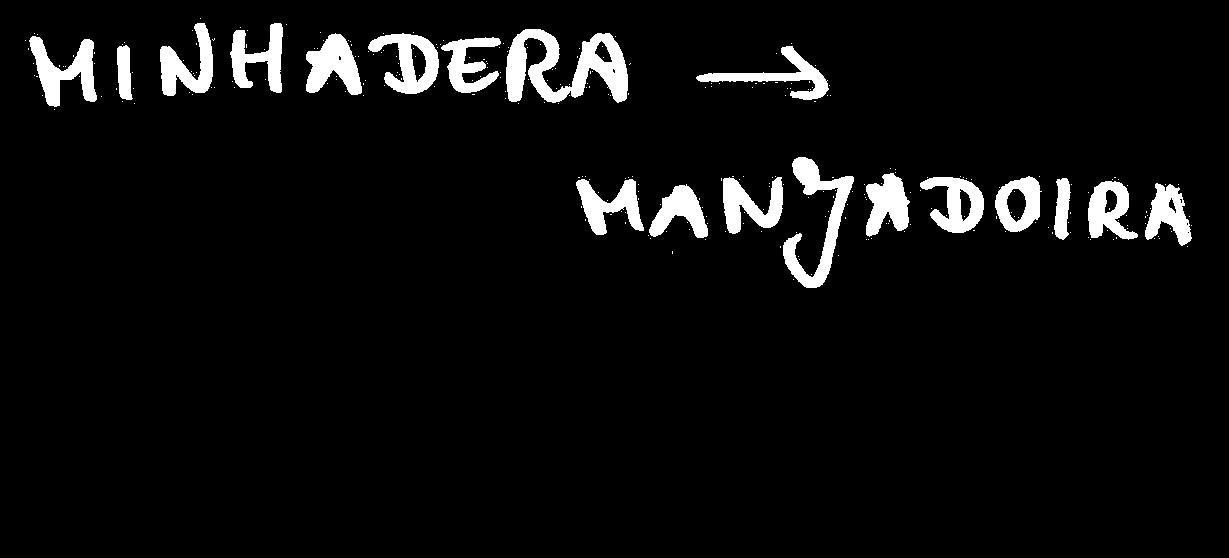 MINHADERA →
MANJADOIRA